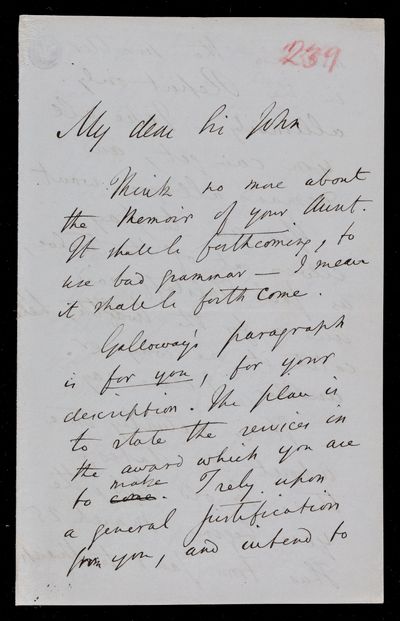 239
My dear Sir John
Think no more about
the Memoir of your Aunt.
It shall be forthcoming, to
use bad grammar — I mean
it shall be forth come.
Galloway's paragraph
is for you, for your
description. The plan is
to state the services in
the award which you are
make
to come. I rely upon
a general justification
from you, and intend to